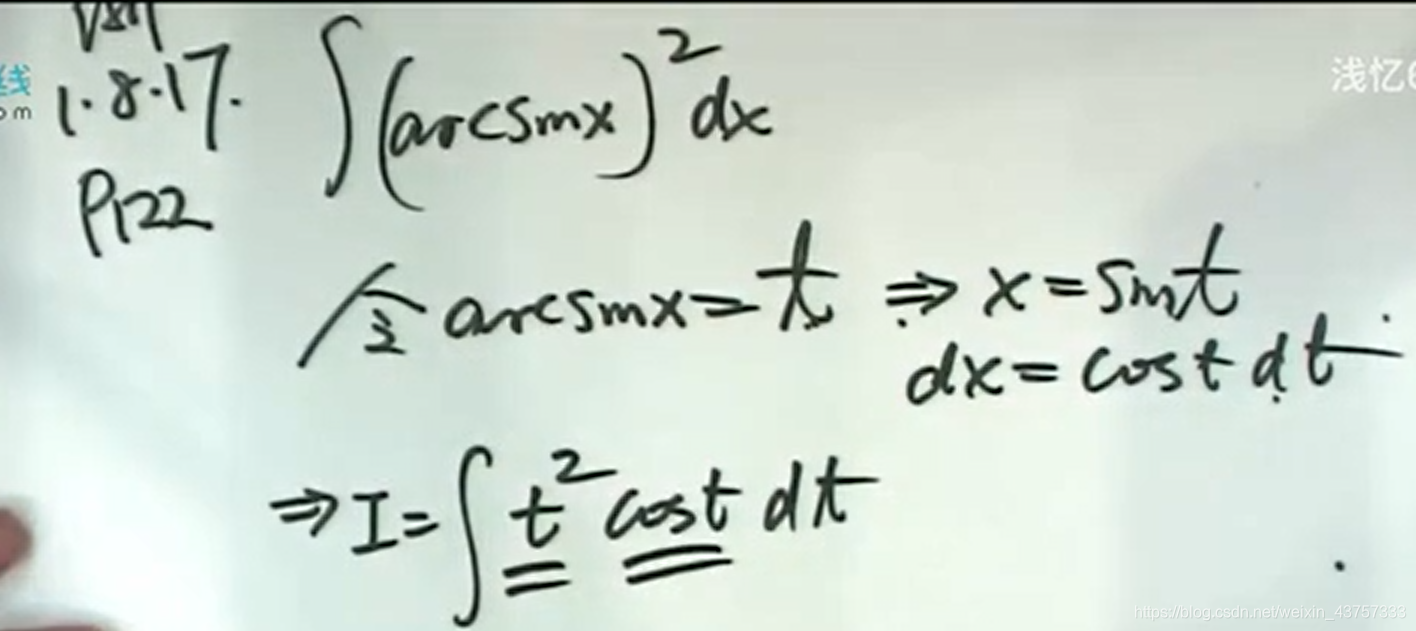 线
om
1.8.17.
P122
∫(arcsinx)² dx
浅忆6
令 arcsinx = t ⇒ x = sint
dx = cost dt
⇒ I = ∫ t² cost dt
https://blog.csdn.net/weixin_43757333